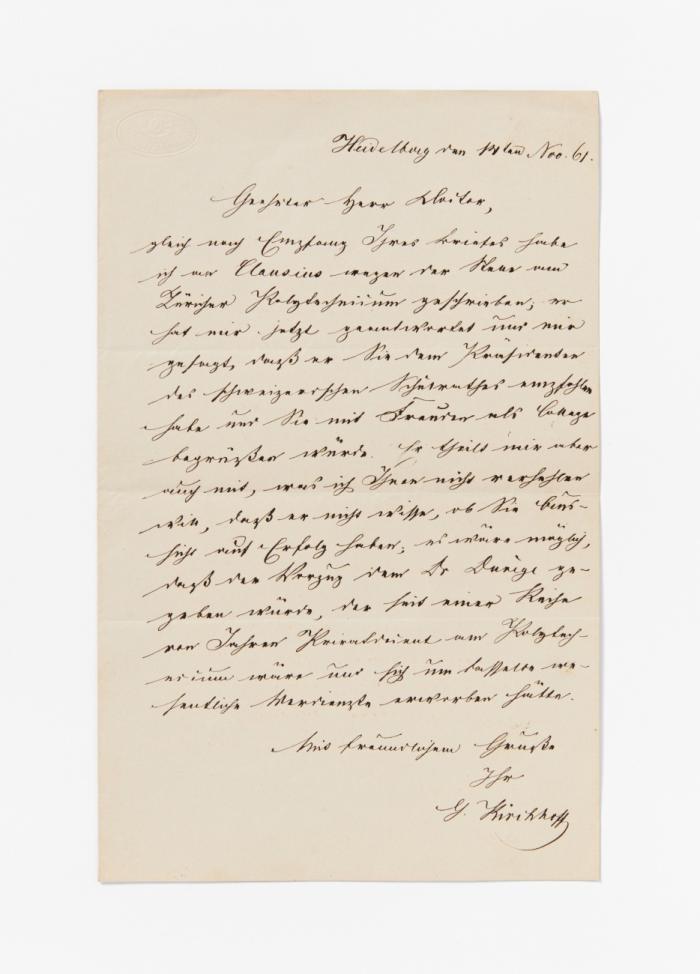 Heidelberg den 14ten Nov. 61.
Geehrter Herr Doctor,
gleich nach Empfang Ihres Briefes habe
ich an Clausius wegen der Stelle am
Züricher Polytechnicum geschrieben; er
hat mir jetzt geantwortet und mir
gesagt, daß er Sie dem Präsidenten
des schweizerischen Schulrathes empfohlen
habe und Sie mit Freuden als College
begrüßen würde. Er theilt mir aber
auch mit, was ich Ihnen nicht verhehlen
will, daß er nicht wisse, ob Sie Aus-
sicht auf Erfolg haben; es wäre möglich,
daß der Vorzug dem Dr Durège ge-
geben würde, der seit einer Reihe
von Jahren Privatdocent am Polytech-
nicum wäre und sich um dasselbe we-
sentliche Verdienste erworben hätte.
Mit freundlichem Gruße
Ihr
G. Kirchhoff